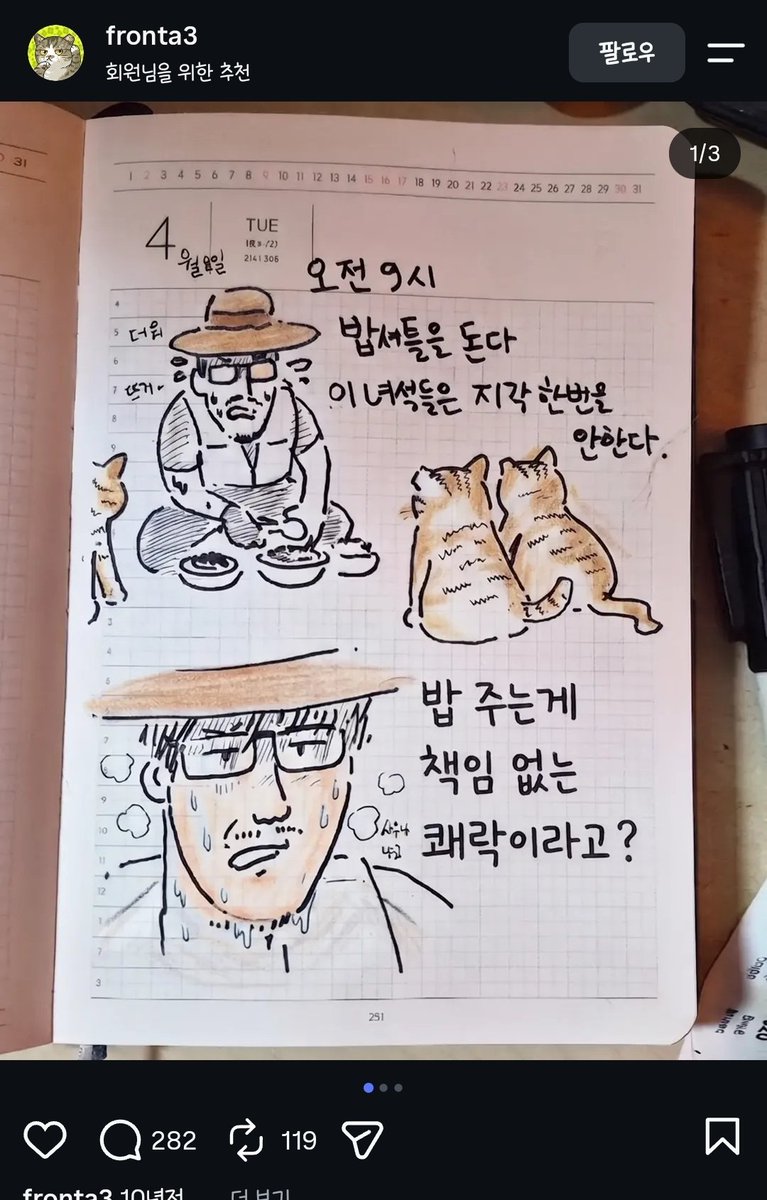 fronta3
회원님을 위한 추천
팔로우
1/3
31
1 2 3 4 5 6 7 8 9 10 11 12 13 14 15 16 17 18 19 20 21 22 23 24 25 26 27 28 29 30 31
4월
TUE
오전 9시
밥셔틀을 돈다
이 녀석들은 지각 한번을
안한다.
더워
뜨거
밥 주는게
책임 없는
쾌락이라고?
사우나
251
282
119
fronta3 10년전
더 보기